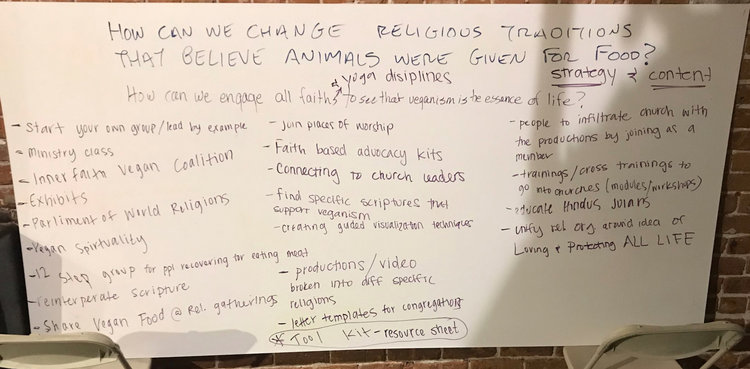 HOW CAN WE CHANGE RELIGIOUS TRADITIONS
THAT BELIEVE ANIMALS WERE GIVEN FOR FOOD?
& yoga disiplines
strategy & content
How can we engage all faiths to see that veganism is the essance of life?
- Start your own group/lead by example
- ministry class
- Innerfaith Vegan Coalition
- Exhibits
- Parliment of World Religions
- Vegan Spirtuality
- 12 Step group for ppl recovering for eating meat
- reinterperate scripture
- Share Vegan Food @ Rel. gatherings
- Join places of worship
- Faith based advocacy kits
- Connecting to church leaders
- find specific scriptures that
support veganism
- creating guided visualization techniques
- productions/video
broken into diff specific
religions
- letter templates for congregations
* TOOL KIT - resource sheet
- people to infiltrate church with
the productions by joining as a
member
- trainings/cross trainings to
go into churches (modules/workshops)
- educate Hindus Jains
- unify rel org around idea of
Loving & Protecting ALL LIFE